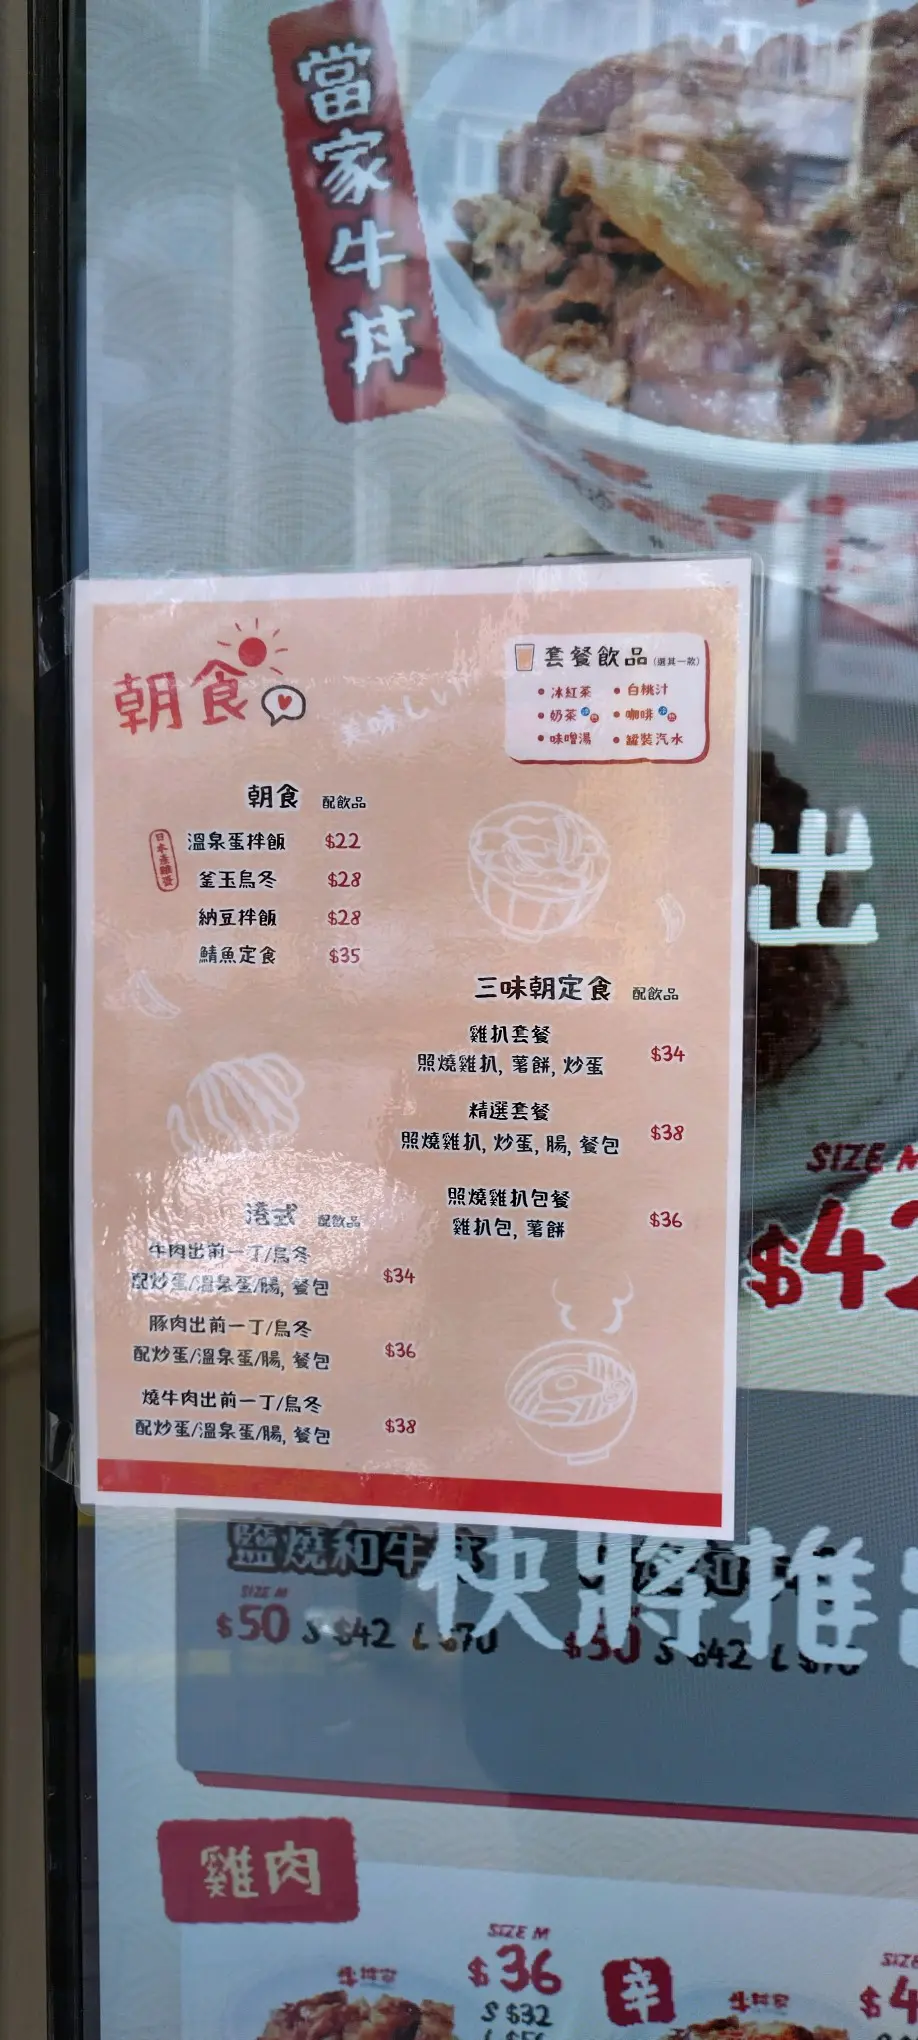 當家牛丼
朝食
美味しい
套餐飲品(選其一款)
• 冰紅茶 • 白桃汁
• 奶茶冷熱 • 咖啡冷熱
• 味噌湯 • 罐裝汽水
朝食 配飲品
日本產雞蛋
溫泉蛋拌飯 $22
釜玉烏冬 $28
納豆拌飯 $28
鯖魚定食 $35
三味朝定食 配飲品
雞扒套餐
照燒雞扒, 薯餅, 炒蛋 $34
精選套餐
照燒雞扒, 炒蛋, 腸, 餐包 $38
照燒雞扒包餐
雞扒包, 薯餅 $36
港式 配飲品
牛肉出前一丁/烏冬
配炒蛋/溫泉蛋/腸, 餐包 $34
豚肉出前一丁/烏冬
配炒蛋/溫泉蛋/腸, 餐包 $36
燒牛肉出前一丁/烏冬
配炒蛋/溫泉蛋/腸, 餐包 $38
出
SIZE M
$42
快將推出
鹽燒和牛
SIZE M
$50 S $42 L $70
$50 S $42 L $70
雞肉
SIZE M
$36
S $32
L $56
牛丼家
辛
牛丼家
SIZE
$4